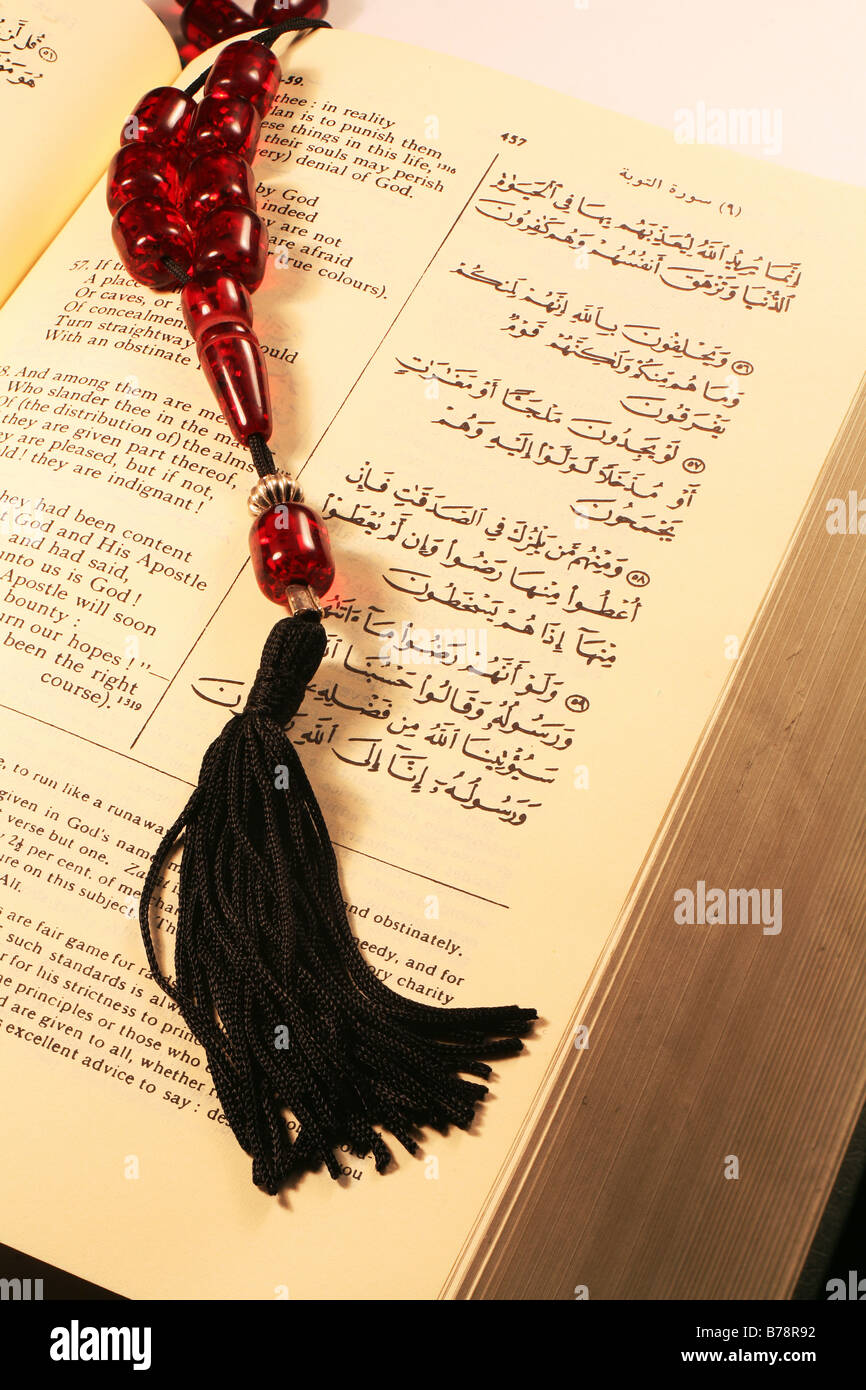 قُلْ أَنْ
هُوَ مَ
-59.
457
(٩) سورة التوبة
thee : in reality
lan is to punish them
ese things in this life, 1316
their souls may perish
ery) denial of God.
by God
indeed
y are not
are afraid
r true colours).
57. If the
A place
Or caves, or a
Of concealme ould
Turn straightway
With an obstinate
8. And among them are me
Who slander thee in the
Of (the distribution of) the alms
they are given part thereof,
ey are pleased, but if not,
old ! they are indignant !
hey had been content
t God and His Apostle
and had said,
unto us is God !
Apostle will soon
bounty :
urn our hopes !"—
been the right
course). 1319
إِنَّمَا يُرِيدُ ٱللَّهُ لِيُعَذِّبَهُم بِهَا فِى ٱلْحَيَوٰةِ
ٱلدُّنْيَا وَتَزْهَقَ أَنفُسُهُمْ وَهُمْ كَٰفِرُونَ
٥٦ وَيَحْلِفُونَ بِٱللَّهِ إِنَّهُمْ لَمِنكُمْ
وَمَا هُم مِّنكُمْ وَلَٰكِنَّهُمْ قَوْمٌ
يَفْرَقُونَ
٥٧ لَوْ يَجِدُونَ مَلْجَـًٔا أَوْ مَغَٰرَٰتٍ
أَوْ مُدَّخَلًا لَّوَلَّوْا۟ إِلَيْهِ وَهُمْ
يَجْمَحُونَ
٥٨ وَمِنْهُم مَّن يَلْمِزُكَ فِى ٱلصَّدَقَٰتِ فَإِنْ
أُعْطُوا۟ مِنْهَا رَضُوا۟ وَإِن لَّمْ يُعْطَوْا۟
مِنْهَآ إِذَا هُمْ يَسْخَطُونَ
٥٩ وَلَوْ أَنَّهُمْ رَضُوا۟ مَآ ءَاتَىٰهُ
وَرَسُولُهُۥ وَقَالُوا۟ حَسْبُنَا ٱ
سَيُؤْتِينَا ٱللَّهُ مِن فَضْلِهِۦ
وَرَسُولُهُۥٓ إِنَّآ إِلَى ٱللَّهِ رَ ونَ
e, to run like a runaway and obstinately.
given in God's name
t verse but one. Zakāt is needy, and for
y 2½ per cent. of merchan ory charity
ure on this subject. Th
Ali.
s are fair game for
such standards is alway
or for his strictness to prin
ne principles or those who
d are given to all, whether r
s excellent advice to say : de ord-
you
alamy
a
alamy
Image ID: B78R92
www.alamy.com